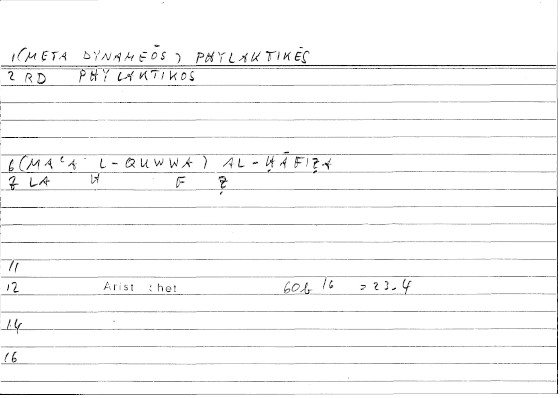 1(META DYNAMEŌS) PHYLAKTIKĒS
2 RD PHYLAKTIKOS
6(MAʿA L-QUWWA) AL-ḤĀFIẒA
7 LA Ḥ F Ẓ
11
12 Arist : het 60b 16 = 23.4
14
16